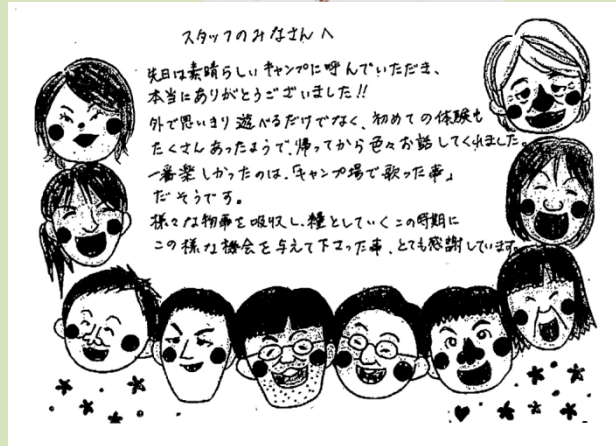 スタッフのみなさんへ
先日は素晴らしいキャンプに呼んでいただき、
本当にありがとうございました!!
外で思いきり遊べるだけでなく、初めての体験も
たくさんあったようで、帰ってから色々お話してくれました。
一番楽しかったのは、「キャンプ場で歌った事」
だそうです。
様々な物事を吸収し、糧としていくこの時期に
この様な機会を与えて下さった事、とても感謝しています。